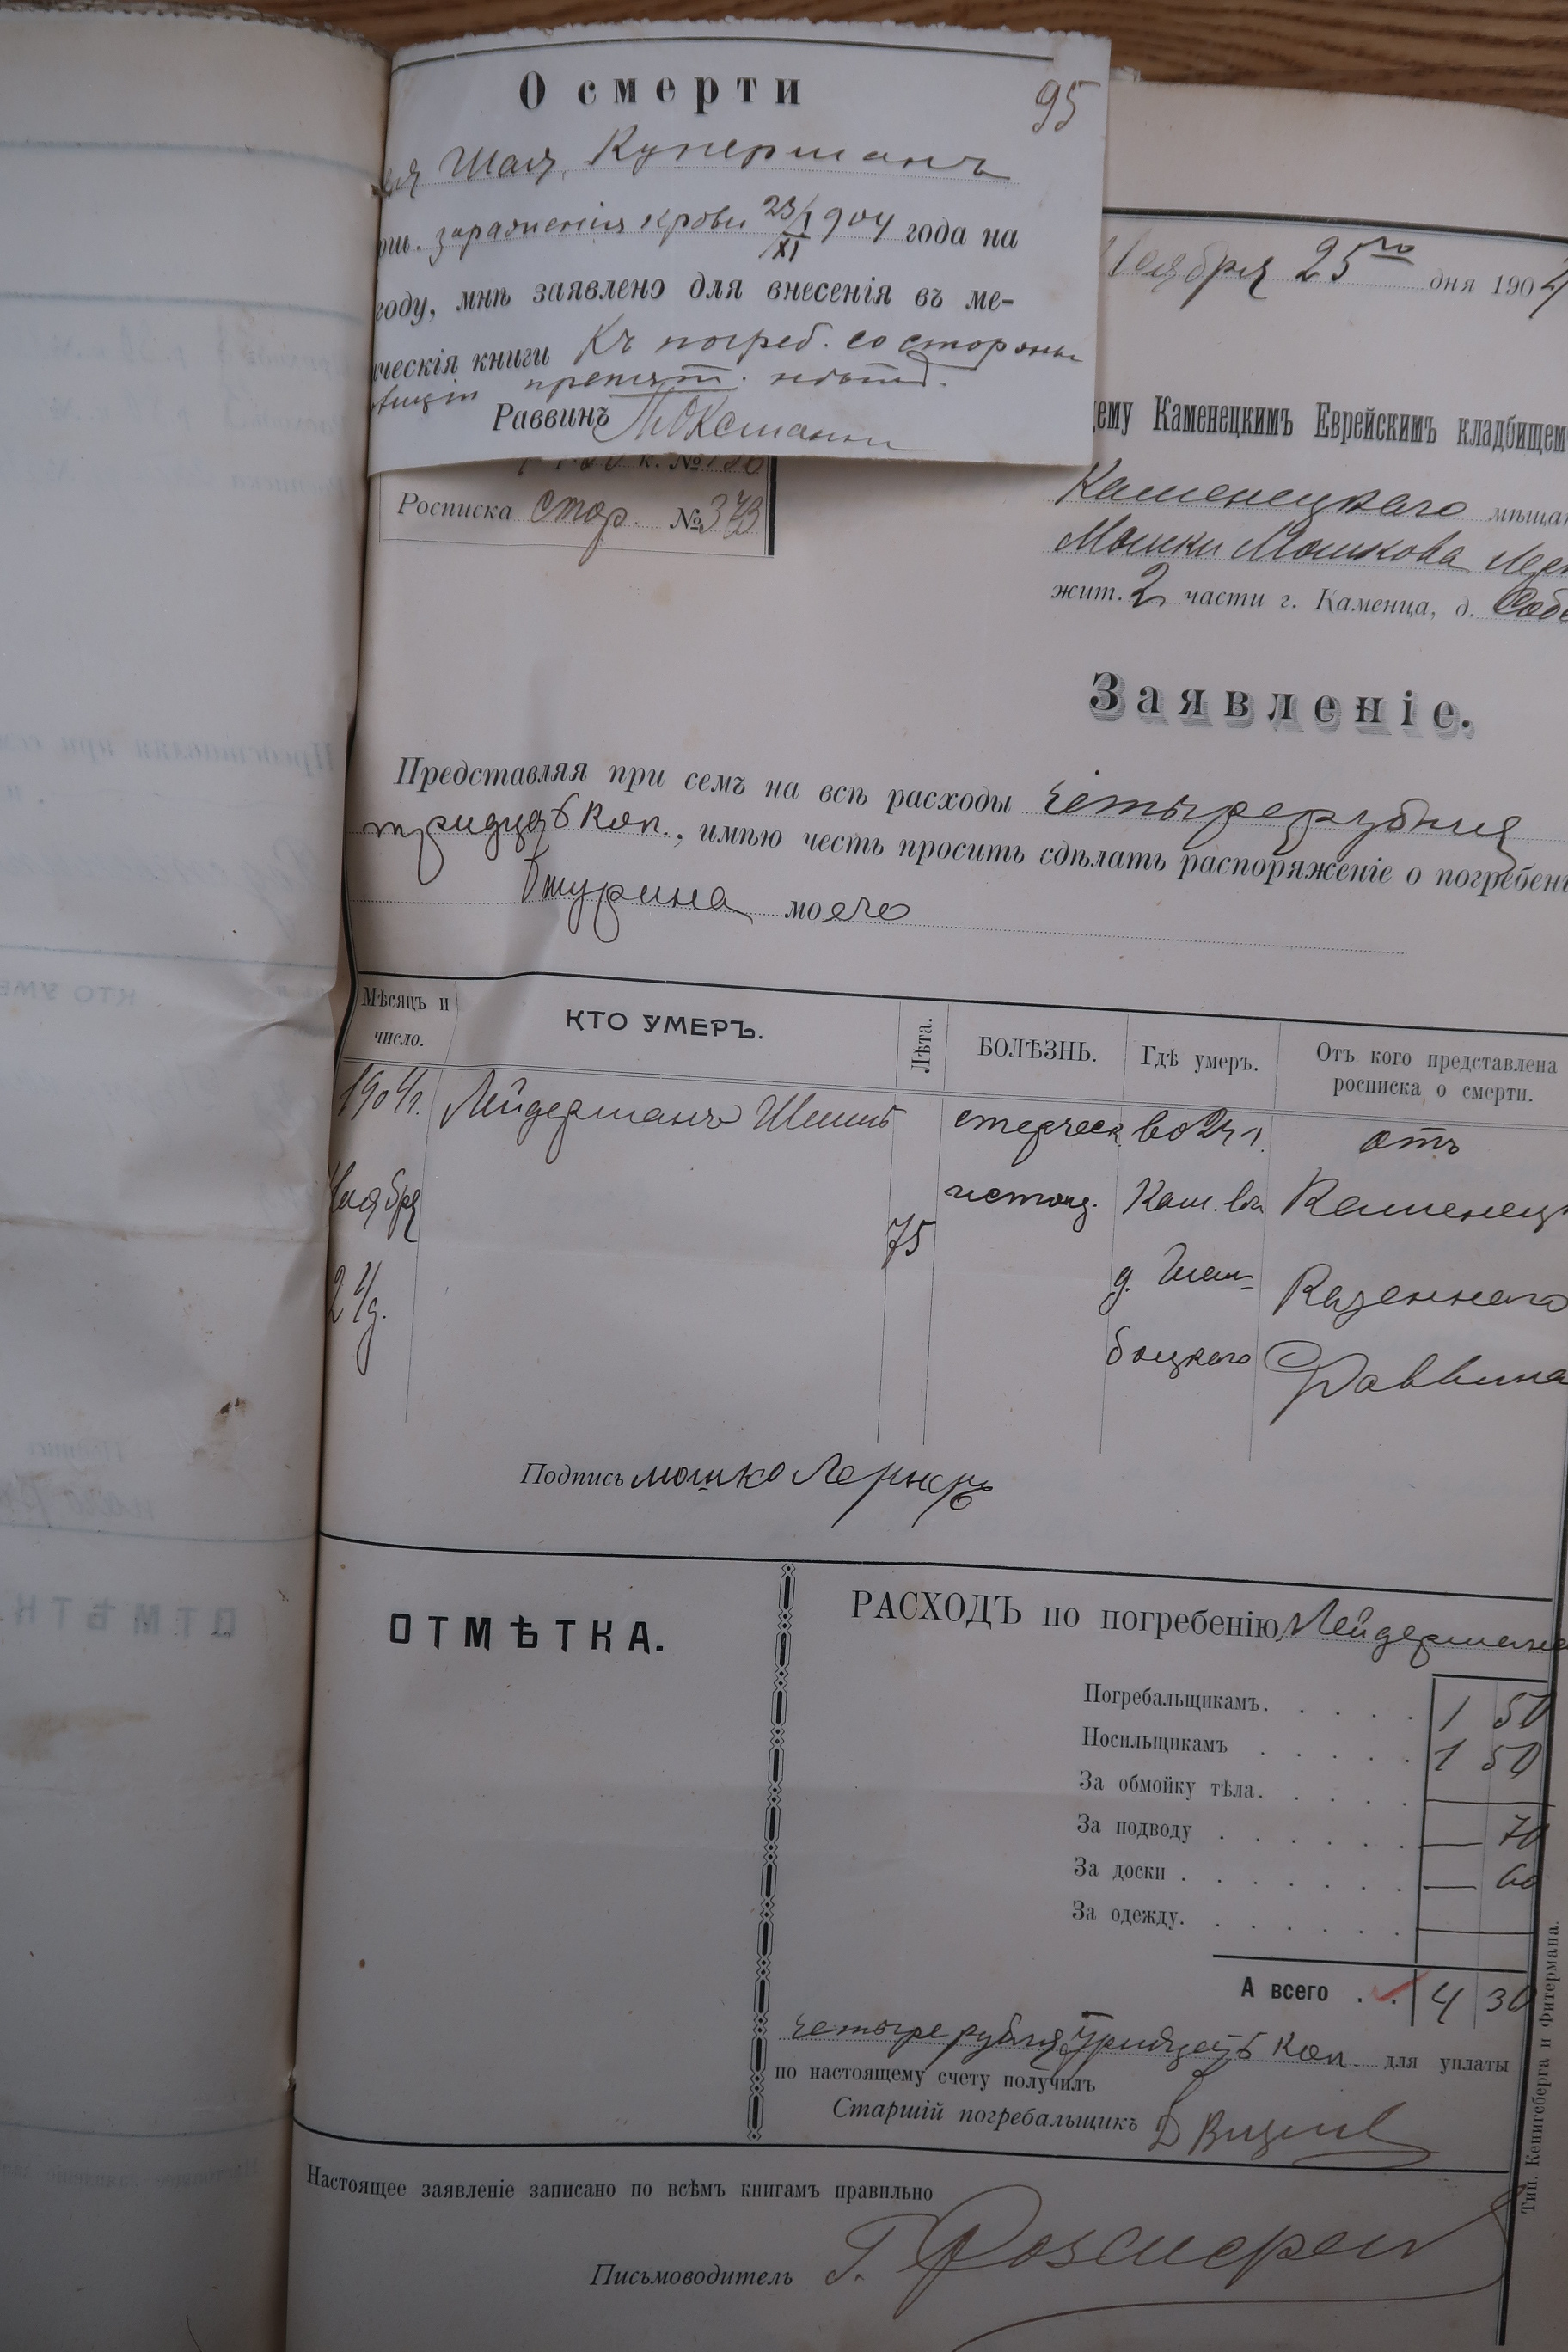 О смерти
95
Шая Куперманъ
зараженія крови 23/XI 1904 года на
году, мнѣ заявлено для внесенія въ ме-
ческія книги Къ погреб. со стороны
препят. нѣтъ.
Раввинъ
к. № 186
Росписка стор. № 373
Ноября 25го дня 1904
ему Каменецкимъ Еврейскимъ кладбищем
Каменецкаго мѣща
Мошки Мошкова
жит. 2 части г. Каменца, д.
Заявленіе.
Представляя при семъ на всѣ расходы четыре рубля
тридцать коп., имѣю честь просить сдѣлать распоряженіе о погребен
моего
Мѣсяцъ и число. КТО УМЕРЪ. Лѣта. БОЛѢЗНЬ. Гдѣ умеръ. Отъ кого представлена росписка о смерти.
1904г. Лейдерманъ старческ. во 2 ч. отъ
Ноября истощ. Кам. въ Каменец
75
24д. д. Казеннаго
Раввина
Подпись мошко Лернеръ
ОТМѢТКА.
РАСХОДЪ по погребенію Лейдермана
Погребальщикамъ. 1 50
Носильщикамъ 1 50
За обмойку тѣла. —
За подводу — 70
За доски — 60
За одежду. —
А всего 4 30
четыре рубля тридцать коп. для уплаты
по настоящему счету получилъ
Старшій погребальщикъ
Настоящее заявленіе записано по всѣмъ книгамъ правильно
Письмоводитель
Тип. Кенигсберга и Фитермана.